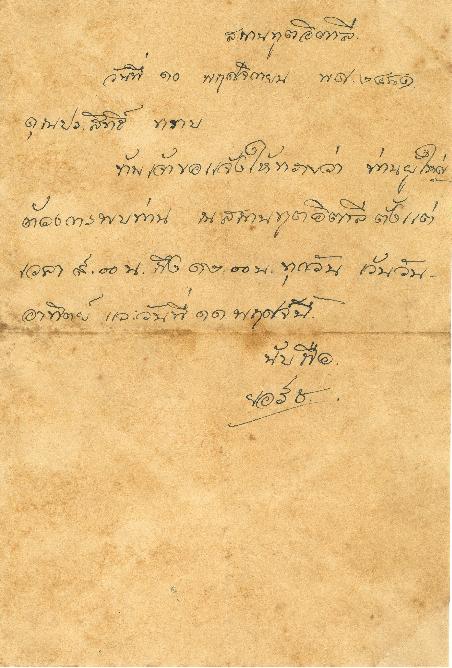 สถานทูตอิตาลี.
วันที่ ๑๐ พฤศจิกายน พ.ศ. ๒๔๘๑
คุณประสิทธิ์ ทราบ
ข้าพเจ้าขอแจ้งให้ทราบว่า ท่านผู้ใหญ่
ต้องการพบท่าน ณ สถานทูตอิตาลี ตั้งแต่
เวลา ๙.๐๐ น. ถึง ๑๒.๐๐ น. ทุกวัน เว้นวัน-
อาทิตย์ และวันที่ ๑๑ พฤศจินี้.
นับถือ.
ยอร์ช.